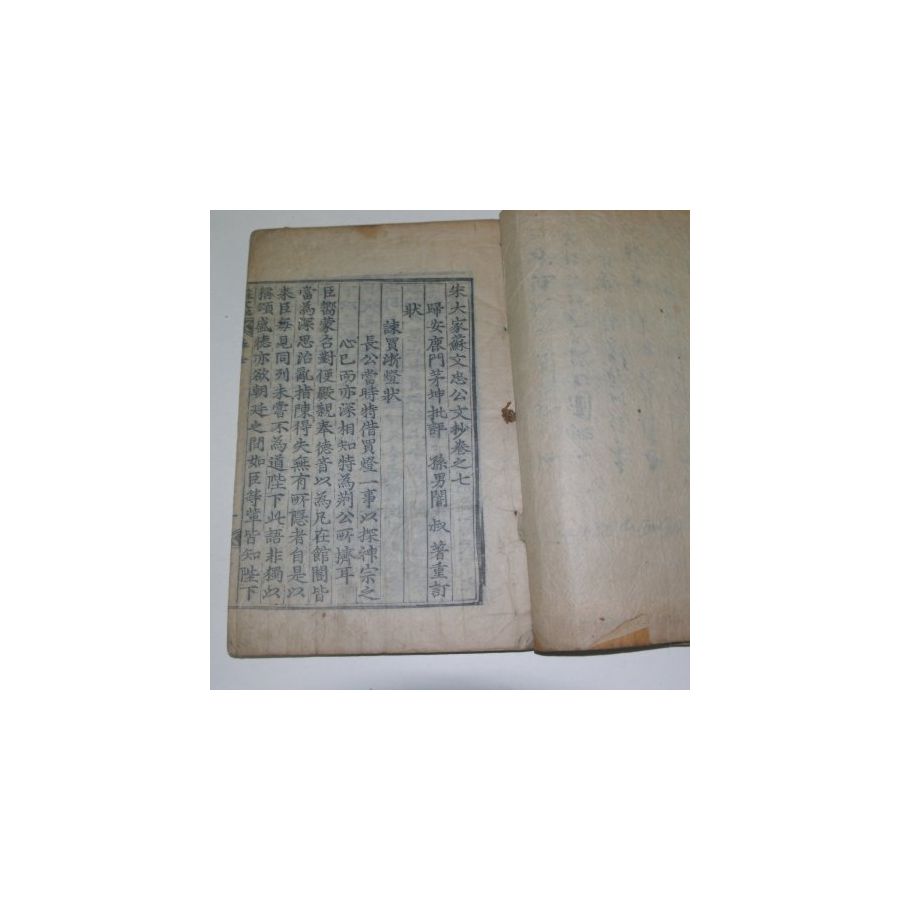 宋大家蘇文忠公文抄卷之七
歸安鹿門茅坤批評 孫男闇 叔 著重訂
狀
諫買浙燈狀
長公當時特借買燈一事以探神宗之
心已而亦深相知特為荊公所擠耳
臣嚮蒙召對便殿親奉德音以為凡在館閣皆
當為深思治亂指陳得失無有所隱者自是以
來臣每見同列未嘗不為道陛下此語非獨以
稱頌盛德亦欲朝廷之間如臣等輩皆知陛下